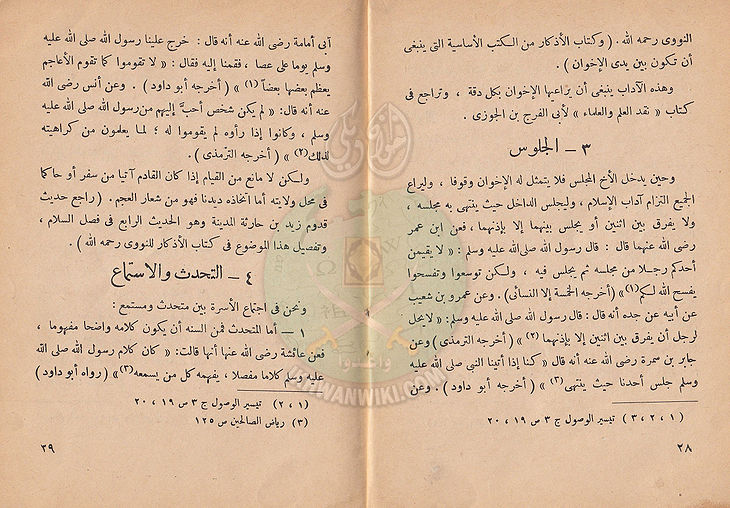 النووى رحمه الله . ( وكتاب الأذكار من الكتب الأساسية التى ينبغى
أن تكون بين يدى الإخوان ) .
وهذه الآداب ينبغى أن يراعيها الإخوان بكل دقة ، وتراجع فى
كتاب « نقد العلم والعلماء » لأبى الفرج بن الجوزى .
٣ – الجلوس
وحين يدخل الأخ المجلس فلا يتمثل له الإخوان وقوفا ، وليراع
الجميع التزام آداب الإسلام ، وليجلس الداخل حيث ينتهى به مجلسه ،
ولا يفرق بين اثنين أو يجلس بينهما إلا بإذنهما ، فعن ابن عمر
رضى الله عنهما قال : قال رسول الله صلى الله عليه وسلم : « لا يقيمن
أحدكم رجلا من مجلسه ثم يجلس فيه ، ولكن توسعوا وتفسحوا
يفسح الله لكم (١) » ( أخرجه الخمسة إلا النسائى ) . وعن عمرو بن شعيب
عن أبيه عن جده أنه قال : قال رسول الله صلى الله عليه وسلم : « لا يحل
لرجل أن يفرق بين اثنين إلا بإذنهما (٢) » ( أخرجه الترمذى ) وعن
جابر بن سمرة رضى الله عنه أنه قال « كنا إذا أتينا النبى صلى الله عليه
وسلم جلس أحدنا حيث ينتهى (٣) » ( أخرجه أبو داود ) . وعن
( ١ ، ٢ ، ٣ ) تيسير الوصول ج ٣ ص ١٩ ، ٢٠
٢٨
أبى أمامة رضى الله عنه أنه قال : خرج علينا رسول الله صلى الله عليه
وسلم يوما على عصا ، فقمنا إليه فقال : « لا تقوموا كما تقوم الأعاجم
يعظم بعضها بعضاً (١) » ( أخرجه أبو داود ) . وعن أنس رضى الله
عنه أنه قال : « لم يكن شخص أحبَّ إليهم من رسول الله صلى الله عليه
وسلم ، وكانوا إذا رأوه لم يقوموا له ؛ لما يعلمون من كراهيته
لذلك (٢) » ( أخرجه الترمذى ) .
ولكن لا مانع من القيام إذا كان القادم آتيا من سفر أو حاكما
فى محل ولايته أما اتخاذه ديدنا فهو من شعار العجم . ( راجع حديث
قدوم زيد بن حارثة المدينة وهو الحديث الرابع فى فصل السلام ،
وتفصيل هذا الموضوع فى كتاب الأذكار للنووى رحمه الله ) .
٤ – التحدث والاستماع
ونحن فى اجتماع الأسرة بين متحدث ومستمع :
١ – أما المتحدث فمن السنه أن يكون كلامه واضحا مفهوما ،
فعن عائشة رضى الله عنها أنها قالت : « كان كلام رسول الله صلى الله
عليه وسلم كلاما مفصلا ، يفهمه كل من يسمعه (٣) » ( رواه أبو داود )
( ١ ، ٢ ) تيسير الوصول ج ٣ ص ١٩ ، ٢٠
(٣) رياض الصالحين ص ١٢٥
٣٩
IKHWANWIKI.COM